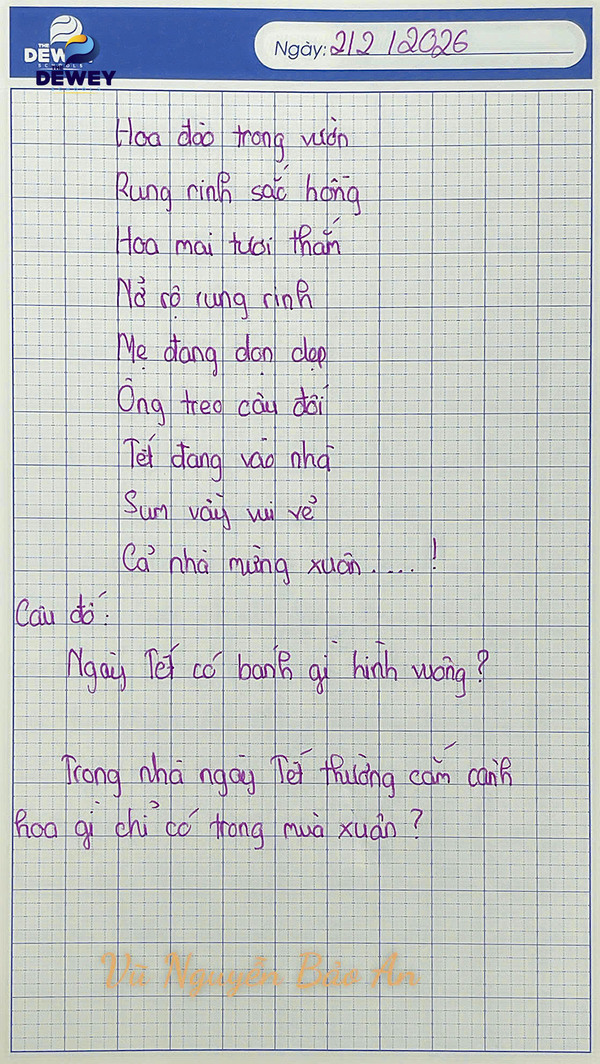 THE
DEWEY
SCHOOLS
DEWEY
Ngày: 212/2026
Hoa đào trong vườn
Rung rinh sắc hồng
Hoa mai tươi thắm
Nở rộ rung rinh
Mẹ đang dọn dẹp
Ông treo câu đối
Tết đang vào nhà
Sum vầy vui vẻ
Cả nhà mừng xuân.....!
Câu đố:
Ngày Tết có bánh gì hình vuông?
Trong nhà ngày Tết thường cắm cành
hoa gì chỉ có trong mùa xuân?
Vũ Nguyễn Bảo An